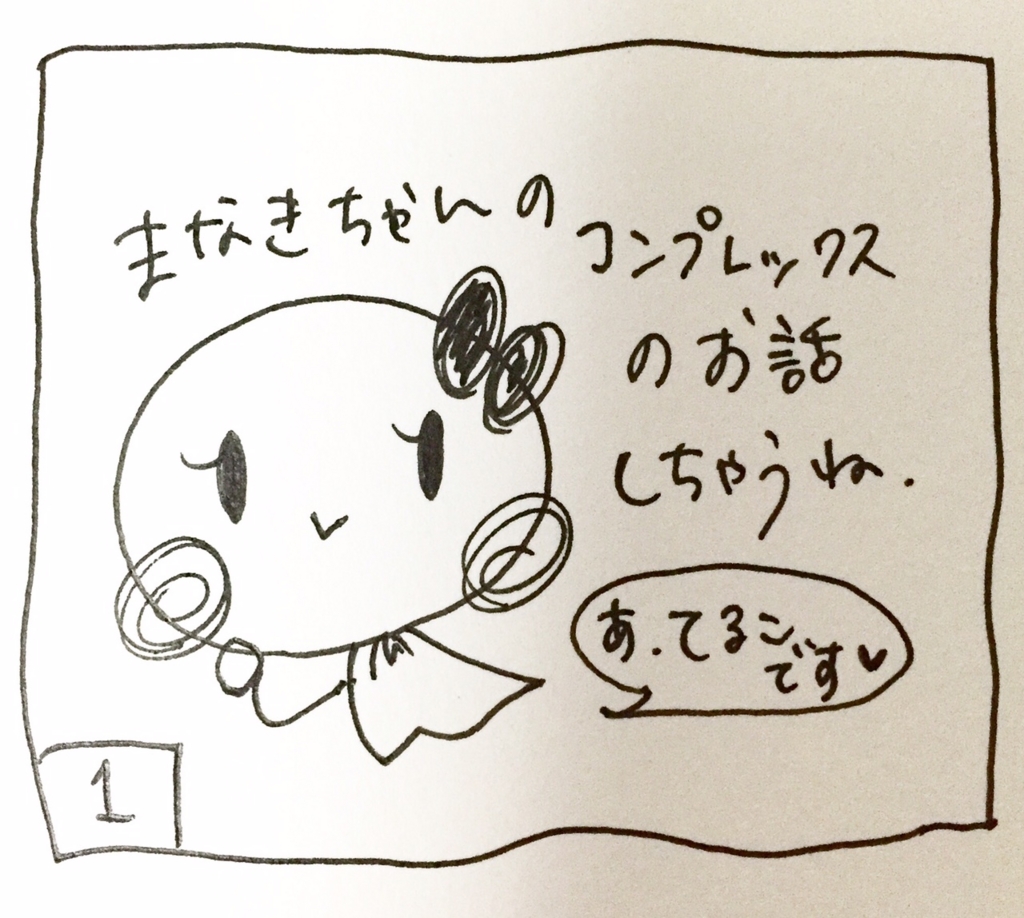 まなきちゃんの
コンプレックス
のお話
しちゃうね.
あ.てるこ
です♥
1